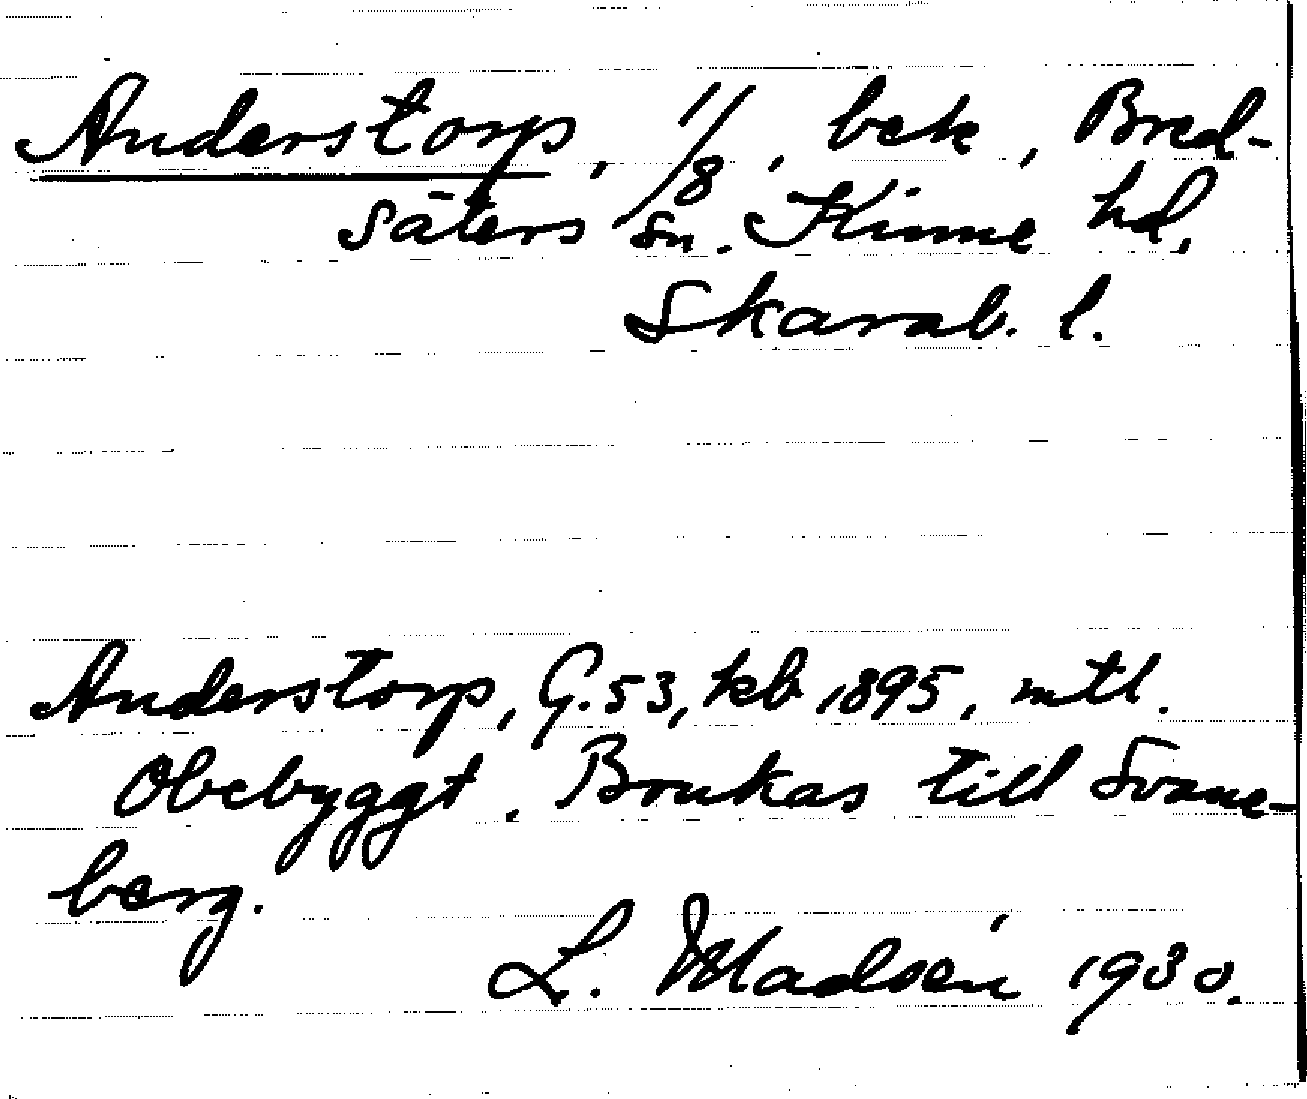 Anderstorp, 1/8, bek, Bred-
säters sn. Kinne hd,
Skarab. l.
Anderstorp, G. 53, kb 1895, mtl.
Obebyggt. Brukas till Svane-
berg.
L. Madsén 1930.